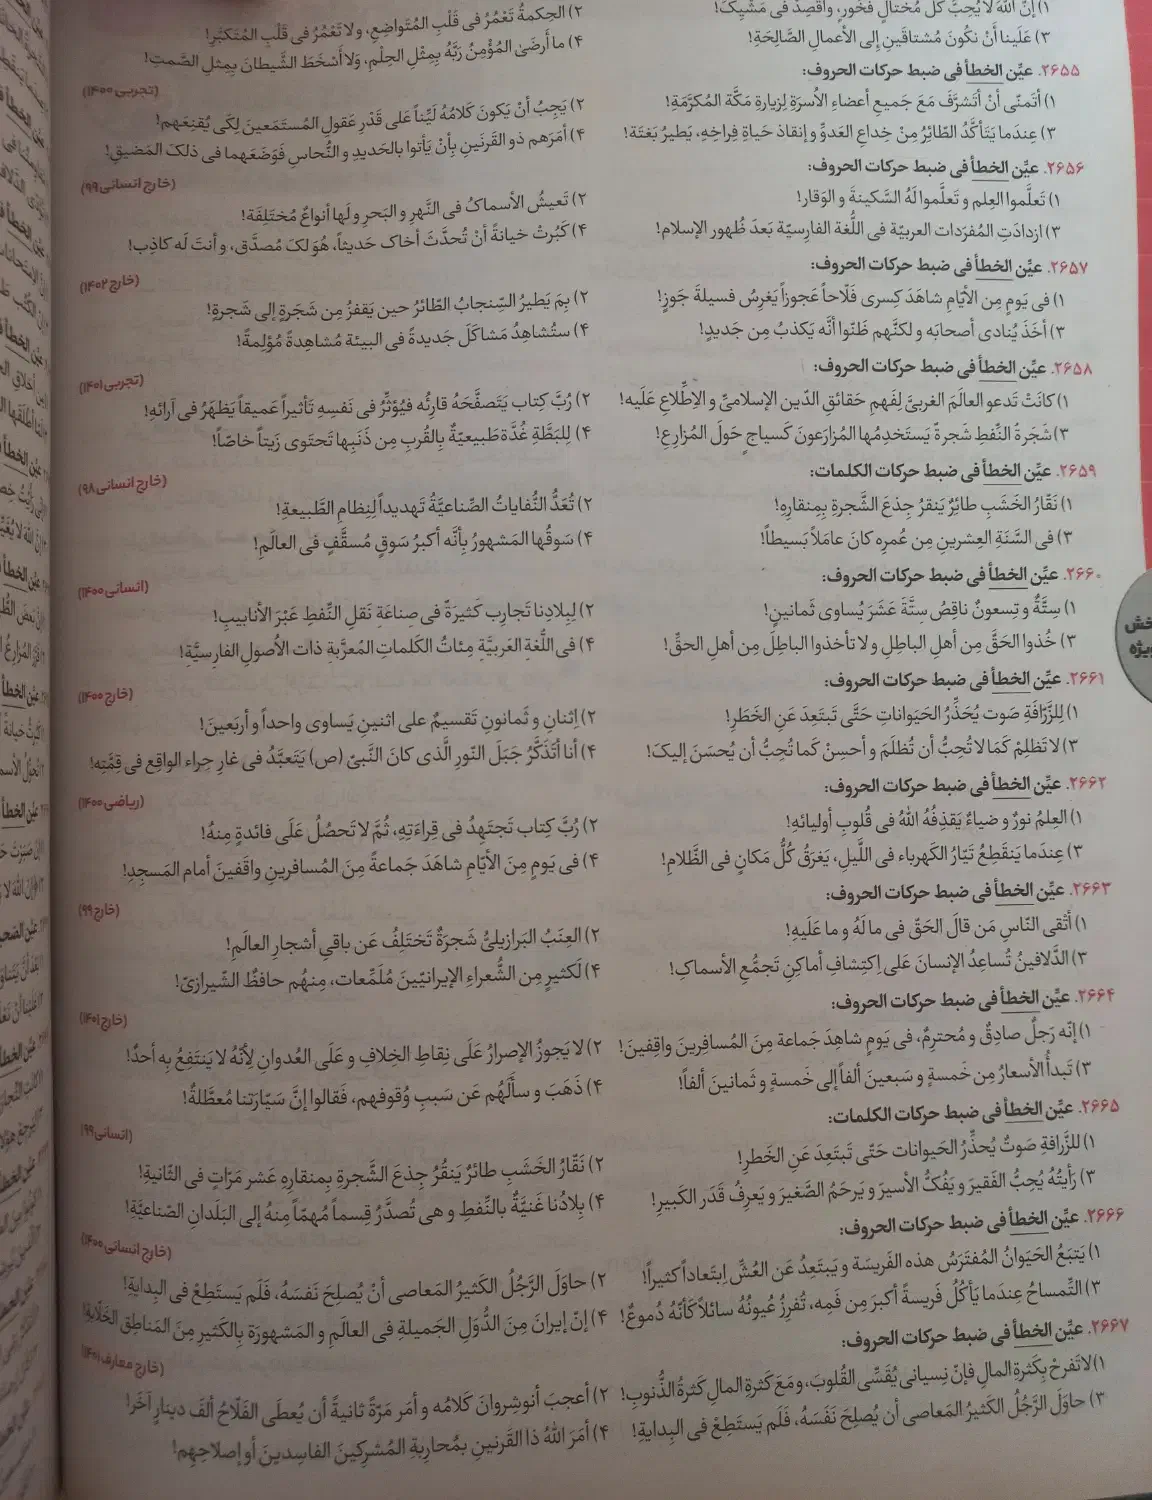 ۱) إنَّ اللّٰهَ لا يُحِبُّ كُلَّ مُختالٍ فَخورٍ، واقصِدْ في مَشيِكَ!
۲) الحِكمةُ تَعْمُرُ في قَلْبِ المُتَواضِعِ، ولا تَعْمُرُ في قَلْبِ المُتَكبِّرِ!
۳) عَلَينا أنْ نكُونَ مُشتاقَينِ إلى الأعمالِ الصّالِحَةِ!
۴) ما أرضَى المُؤْمِنُ رَبَّهُ بِمِثْلِ الحِلْمِ، وَلا أَسْخَطَ الشَّيطانَ بِمِثلِ الصَّمتِ!
۲۶۵۵. عيِّن الخطأ في ضبط حركات الحروف:
(تجربی ۱۴۰۰)
۱) أتَمنّى أنْ أتَشرَّفَ مَعَ جَميعِ أعضاءِ الأُسرَةِ لِزيارةِ مَكَّةَ المُكرَّمَةِ!
۲) يَجِبُ أنْ يَكونَ كَلامُهُ لَيِّناً عَلى قَدْرِ عَقولِ المُستَمَعينَ لِكَي يُقنِعَهم!
۳) عِندَما يَتَأكَّدُ الطّائِرُ مِنْ خِداعِ العَدوِّ و إنقاذِ حَياةِ فِراخِهِ، يَطيرُ بَغتَة!
۴) أمَرَهم ذو القَرنَينِ بِأنْ يَأتوا بالحَديدِ و النُّحاسِ فَوَضَعَهما في ذلكَ المَضيقِ!
۲۶۵۶. عيِّن الخطأ في ضبط حركات الحروف:
(خارج انسانی ۹۹)
۱) تَعلَّموا العِلم و تَعلَّموا لَهُ السَّكينةَ و الوَقار!
۲) تَعيشُ الأسماكُ في النَّهرِ و البَحرِ و لَها أنواعٌ مُختَلِفَة!
۳) ازدادَتِ المُفرَدات العربيّة في اللُّغة الفارِسيّة بَعدَ ظُهور الإسلام!
۴) كَبُرتْ خيانةً أنْ تُحدَّثَ أخاك حَديثاً، هُوَ لكَ مُصدَّق، و أنتَ لَه كاذِب!
۲۶۵۷. عيِّن الخطأ في ضبط حركات الحروف:
(خارج ۱۴۰۲)
۱) في يَومٍ مِن الأيّامِ شاهَدَ كِسرى فَلّاحاً عَجوزاً يَغرِسُ فَسيلةَ جَوزٍ!
۲) بِمَ يَطيرُ السِّنجابُ الطّائرُ حين يَقفزُ مِن شَجَرَةٍ إلى شَجرةٍ!
۳) أخَذَ يُنادي أصحابَه و لكنَّهم ظَنّوا أنَّه يَكذبُ مِن جَديدٍ!
۴) ستُشاهِدُ مَشاكَلَ جَديدةً في البيئة مُشاهِدةً مُؤلِمةً!
۲۶۵۸. عيِّن الخطأ في ضبط حركات الحروف:
(تجربی ۱۴۰۱)
۱) كانَتْ تَدعو العالَمَ الغربيَّ لِفَهمِ حَقائقِ الدّين الإسلاميِّ و الاِطِّلاعِ عَلَيه!
۲) رُبَّ كِتاب يَتَصفَّحَهُ قارِئُه فيُؤثِّرُ في نَفسِهِ تَأثيراً عَميقاً يَظهَرُ في آرائِهِ!
۳) شَجَرةُ النِّفطِ شَجرةً يَستَخدِمُها المُزارَعونَ كَسياجٍ حَولَ المُزارعِ!
۴) لِلبَطَّةِ غُدَّة طَبيعيّةٌ بِالقُربِ مِن ذَنَبِها تَحتَوي زَيتاً خاصّاً!
۲۶۵۹. عيِّن الخطأ في ضبط حركات الكلمات:
(خارج انسانی ۹۸)
۱) نَقّارُ الخَشَبِ طائِرٌ يَنقرُ جِذعَ الشَّجرةِ بِمِنقارِهِ!
۲) تُعَدُّ النُّفاياتُ الصِّناعيَّةُ تَهديداً لِنِظامِ الطَّبيعةِ!
۳) في السَّنَةِ العِشرينِ مِن عُمرِه كانَ عامَلاً بَسيطاً!
۴) سَوقُها المَشهورُ بِأنَّه أكبرُ سَوقٍ مُسقَّفٍ في العالَمِ!
۲۶۶۰. عيِّن الخطأ في ضبط حركات الحروف:
(انسانی ۱۴۰۰)
۱) سِتَّةٌ و تِسعونٌ ناقِصُ سِتَّةَ عَشَرَ يُساوي ثَمانينٍ!
۲) لِبِلادِنا تَجارِب كَثيرَةً في صِناعَةِ نَقلِ النِّفطِ عَبْرَ الأنابيبِ!
۳) خُذوا الحَقَّ مِن أهلِ الباطِلِ و لا تأخذوا الباطِلَ مِن أهلِ الحقِّ!
۴) في اللُّغةِ العَرَبيَّةِ مِئاتُ الكَلماتِ المُعرَّبةِ ذات الأُصولِ الفارِسيَّةِ!
۲۶۶۱. عيِّن الخطأ في ضبط حركات الحروف:
(خارج ۱۴۰۰)
۱) لِلزَّرّافَةِ صَوت يُحَذِّرُ الحَيَواناتِ حَتَّى تَبتَعِدَ عَنِ الخَطَرِ!
۲) اِثنانِ و ثَمانونِ تَقسيمٌ على اثنينِ يَساوي واحداً و أربَعينَ!
۳) لا تَظلِمْ كَمَا لا تُحِبُّ أن تُظلَمَ و أحسِنْ كَما تُحِبُّ أن يُحسَنَ إليكَ!
۴) أنا أتَذَكَّرُ جَبَلَ النّورِ الَّذي كانَ النَّبيّ (ص) يَتَعبَّدُ في غارِ حِراء الواقِعِ في قِمَّتِه!
۲۶۶۲. عيِّن الخطأ في ضبط حركات الحروف:
(ریاضی ۱۴۰۰)
۱) العِلمُ نورٌ و ضياءٌ يَقذِفُهُ اللّٰهُ في قُلوبِ أوليائهِ!
۲) رُبَّ كِتاب تَجتَهِدُ في قِراءَتِهِ، ثُمَّ لا تَحصُلُ عَلَى فائدةٍ مِنهُ!
۳) عِندَما يَنقَطِعُ تَيّارُ الكَهرباء في اللَّيلِ، يَغرَقُ كُلُّ مَكانٍ في الظَّلامِ!
۴) في يَومٍ مِنَ الأيّامِ شاهَدَ جَماعةً مِنَ المُسافرينِ واقَفينَ أمام المَسجِدِ!
۲۶۶۳. عيِّن الخطأ في ضبط حركات الحروف:
(خارج ۹۹)
۱) أتْقى النّاسِ مَن قالَ الحَقّ في ما لَهُ و ما عَلَيهِ!
۲) العِنَبُ البَرازيليُّ شَجرَةٌ تَختَلِفُ عَن باقي أشجارِ العالَمِ!
۳) الدَّلافينُ تُساعِدُ الإنسانَ عَلى اِكتِشافِ أماكِنِ تَجمُّعِ الأسماكِ!
۴) لَكثيرٍ مِن الشُّعراءِ الإيرانيّينَ مُلَمِّعات، مِنهُم حافظُ الشّيرازيّ!
۲۶۶۴. عيِّن الخطأ في ضبط حركات الحروف:
(خارج ۱۴۰۱)
۱) إنّه رَجلٌ صادِقٌ و مُحترِمٌ، في يَومٍ شاهِدَ جَماعة مِنَ المُسافِرينَ واقِفينَ!
۲) لا يَجوزُ الإصرارُ عَلَى نِقاطِ الخِلافِ و عَلَى العُدوانِ لِأنَّهُ لا يَنتَفِعُ بِه أحدٌ!
۳) تَبدأُ الأسعارُ مِن خَمسةٍ و سَبعينَ ألفاً إلى خَمسةٍ و ثَمانينَ ألفاً!
۴) ذَهَبَ و سألَهُم عَن سَببِ وُقوفهم، فَقالوا إنَّ سَيّارَتنا مُعطَّلةٌ!
۲۶۶۵. عيِّن الخطأ في ضبط حركات الكلمات:
(انسانی ۹۹)
۱) للزَّرافةِ صَوتٌ يُحذِّرُ الحَيوانات حَتّى تَبتَعِدَ عَنِ الخَطرِ!
۲) نَقّارُ الخَشَبِ طائرٌ يَنقُرُ جِذعَ الشَّجرةِ بِمنقارِه عَشر مَرّاتٍ في الثّانيةِ!
۳) رَأيتُهُ يُحِبُّ الفَقيرَ و يَفُكُّ الأسيرَ و يَرحَمُ الصَّغيرَ و يَعرِفُ قَدَر الكَبيرِ!
۴) بِلادُنا غَنيَّةٌ بالنِّفطِ و هي تُصدَّرُ قِسماً مُهمّاً مِنهُ إلى البَلَدانِ الصِّناعيَّةِ!
۲۶۶۶. عيِّن الخطأ في ضبط حركات الحروف:
(خارج انسانی ۱۴۰۰)
۱) يَتبَعُ الحَيَوانُ المُفتَرَسُ هذه الفَريسَة و يَبتعِدُ عَن العُشِّ اِبتَعاداً كثيراً!
۲) حاوَلَ الرَّجُلُ الكَثيرُ المَعاصي أنْ يُصلِحَ نَفسَهُ، فَلَم يَستَطِعْ في البِدايةِ!
۳) التِّمساحُ عِندَما يَأكُلُ فَريسةً أكبرَ مِن فَمِه، تُفرِزُ عُيونُهُ سائلاً كَأنَّهُ دُموعٌ!
۴) إنّ إيرانَ مِنَ الدُّوَلِ الجَميلةِ في العالَمِ و المَشهورَةِ بِالكَثيرِ مِنَ المَناطِقِ الخَلّابَةِ!
۲۶۶۷. عيِّن الخطأ في ضبط حركات الحروف:
(خارج معارف ۱۴۰۱)
۱) لا تَفرحْ بِكَثرةِ المالِ فإنّ نِسياني يُقَسِّي القُلوبَ، ومَعَ كَثرةِ المالِ كَثرةُ الذُّنوبِ!
۲) أعجبَ أنوشِروانَ كَلامُه و أمَر مَرّةً ثانيةً أن يُعطَى الفَلّاحُ ألفَ دينارٍ آخَر!
۳) حاوَلَ الرَّجُلُ الكَثيرُ المَعاصي أن يُصلِحَ نَفَسَهُ، فَلَم يَستَطِعْ في البِدايةِ!
۴) أمَرَ اللّٰهُ ذا القَرنينِ بمُحاربةِ المُشرِكينَ الفاسِدينَ أو إصلاحِهِم!
بخش
ویژه